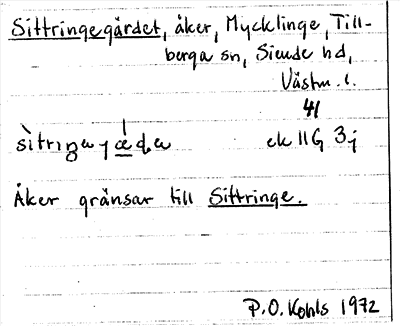 Sittringegärdet, åker, Mycklinge, Till-
berga sn, Siende hd,
Västm. l.
41
ek 11G 3j
Åker gränsar till Sittringe.
P.O. Kohls 1972